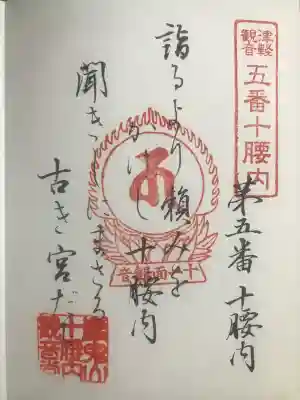 津軽観音
五番十腰内
第五番 十腰内
詣るより頼みを
かけし 十腰内
聞き にまさる
古き宮だ
十一面観音
十腰内
観音